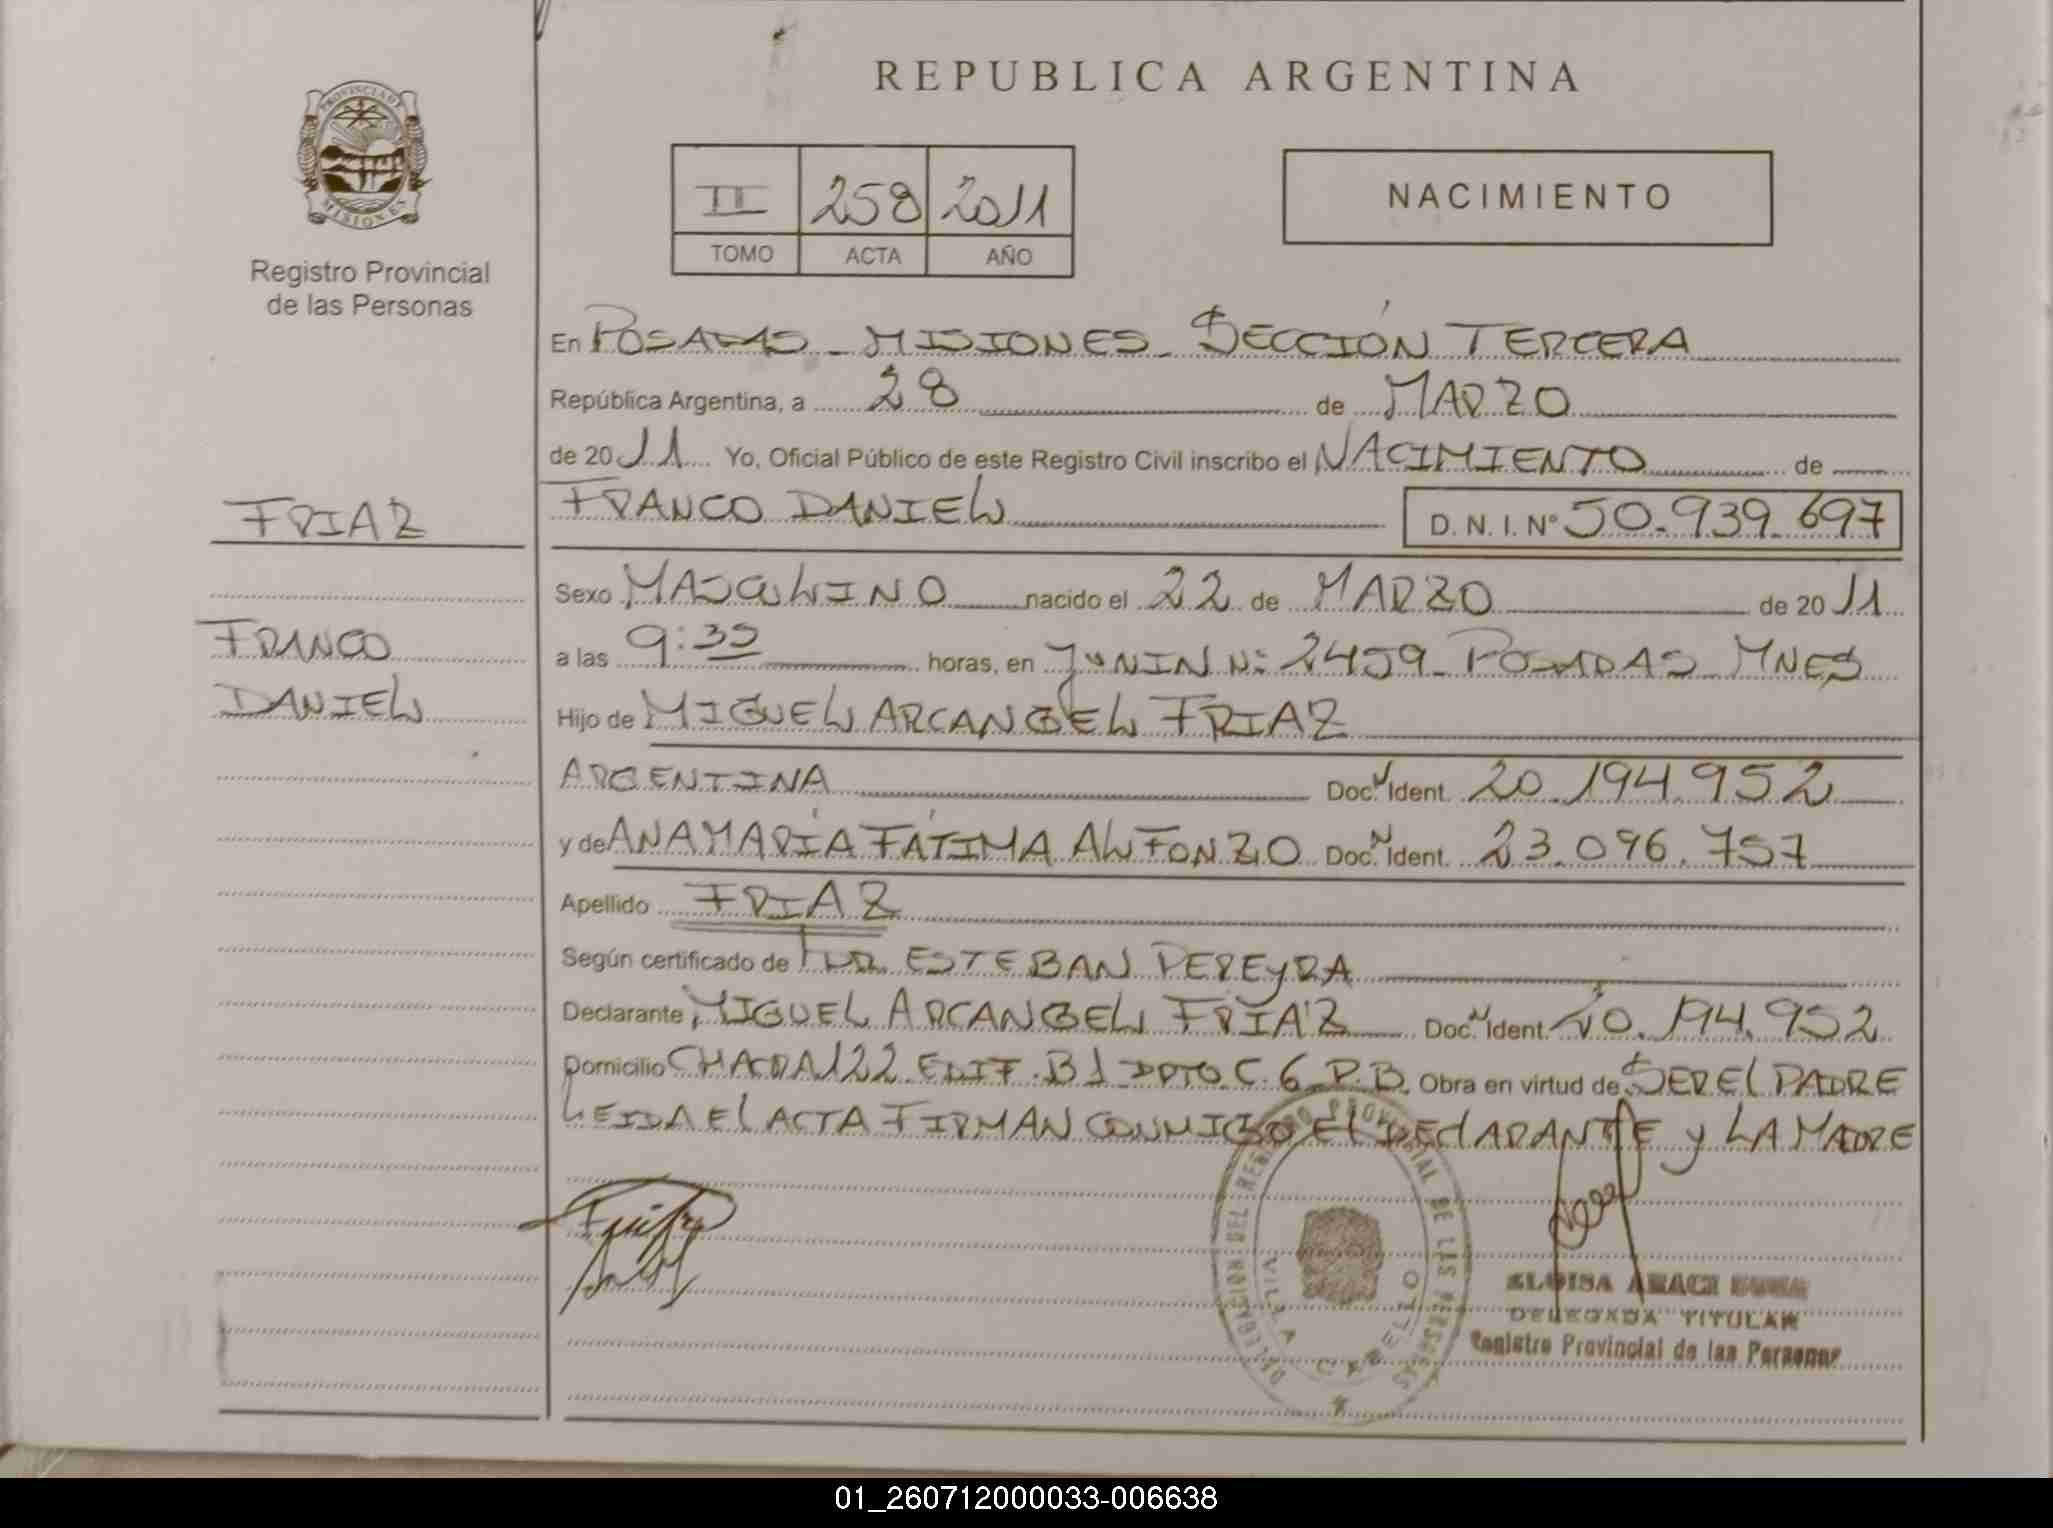 REPUBLICA ARGENTINA
PROVINCIA DE
MISIONES
Registro Provincial
de las Personas
II 258 2011
TOMO ACTA AÑO
NACIMIENTO
En POSADAS - MISIONES - SECCIÓN TERCERA
República Argentina, a 28 de MARZO
de 2011 Yo, Oficial Público de este Registro Civil inscribo el NACIMIENTO de
FRIAZ
FRANCO DANIEL D. N. I. Nº 50.939.697
Sexo MASCULINO nacido el 22 de MARZO de 2011
FRANCO
DANIEL
a las 9:35 horas, en JUNIN Nº 2459 - POSADAS MNES
Hijo de MIGUEL ARCANGEL FRIAZ
ARGENTINA Doc. Ident. 20.194.952
y de ANA MARÍA FÁTIMA ALFONZO Doc. Ident. 23.096.757
Apellido FRIAZ
Según certificado de DR. ESTEBAN PEREYRA
Declarante MIGUEL ARCANGEL FRIAZ Doc. Ident. 20.194.952
Domicilio CHACRA 122 EDIF. B1 DPTO C. 6 P.B. Obra en virtud de SER EL PADRE
LEIDA EL ACTA FIRMAN CONMIGO EL DECLARANTE y LA MADRE
DELEGACION DEL REGISTRO PROVINCIAL DE LAS PERSONAS
VILLA CABELLO
ELOISA
DELEGADA TITULAR
Registro Provincial de las Personas
01_260712000033-006638